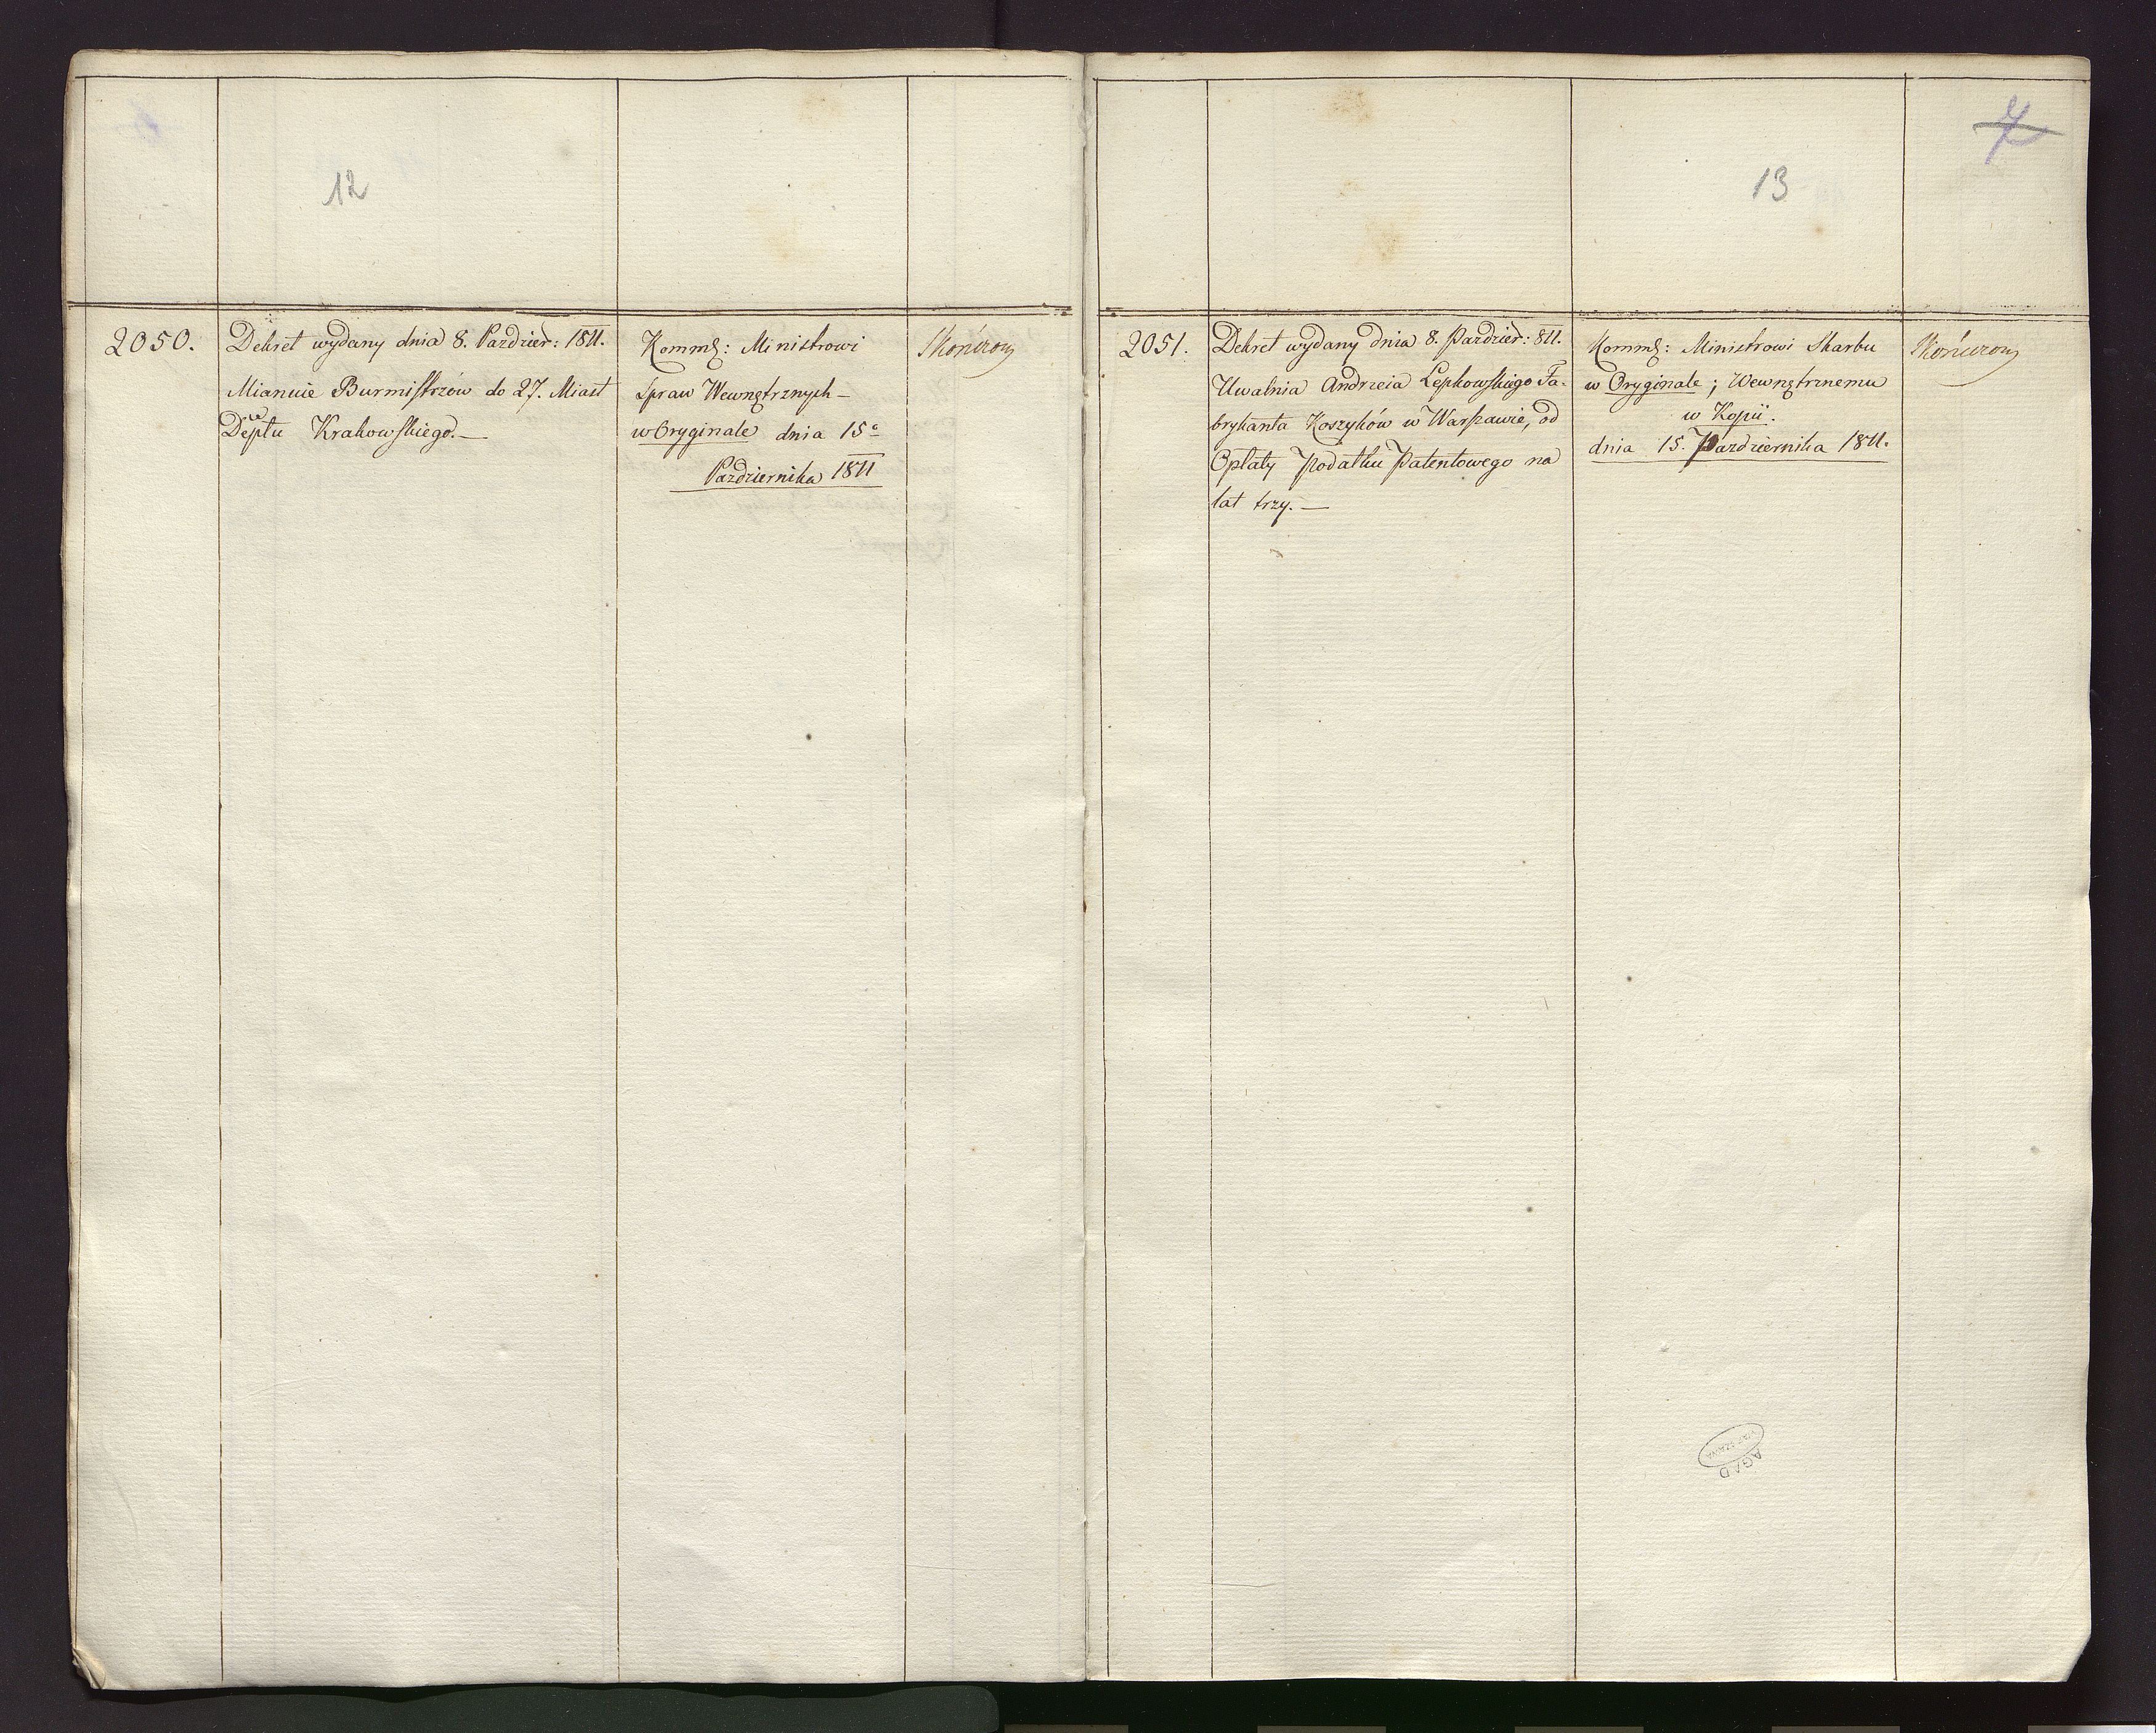 12
2050.
Dekret wydany dnia 8. Paździer: 1811.
Mianuie Burmistrzów do 27. Miast
Deptu Krakowskiego.—
Komm: Ministrowi
Spraw Wewnętrznych—
w Oryginale dnia 15º
Października 1811
Skończony
7
13
2051.
Dekret wydany dnia 8. Paździer: 811.
Uwalnia Andrzeia Lepkowskiego Fa-
brykanta Koszyków w Warszawie, od
Opłaty Podatku Patentowego na
lat trzy.—
Komm: Ministrowi Skarbu
w Oryginale; Wewnętrznemu
w Kopii.
dnia 15. Października 1811.
Skończony
AGAD
WARSZAWA